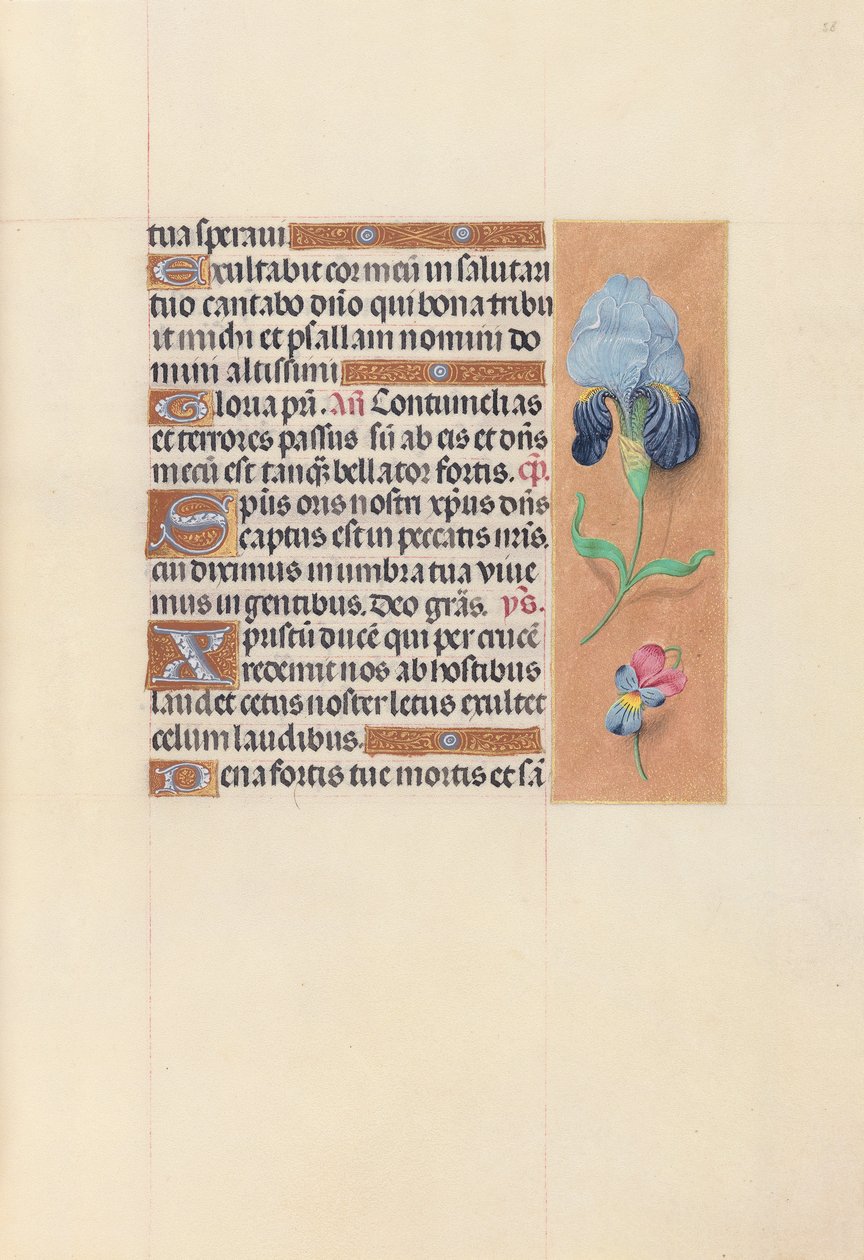 38
tua speraui
Exultabit cor meū in salutari
tuo cantabo dn̄o qui bona tribu
it michi et psallam nomini do
mini altissimi
Gloria pr̄i. An̄ Contumelias
et terrores passus sū ab eis et dn̄s
mecū est tanqȝ bellator fortis. cp̄.
Spūs oris nostri xp̄us dn̄s
captus est in peccatis nr̄is.
cui diximus in umbra tua viue
mus in gentibus. Deo grās. ym̄s.
Xpristū ducē qui per crucē
redemit nos ab hostibus
laudet cetus noster letus exultet
celum laudibus.
Pena fortis tue mortis et sā